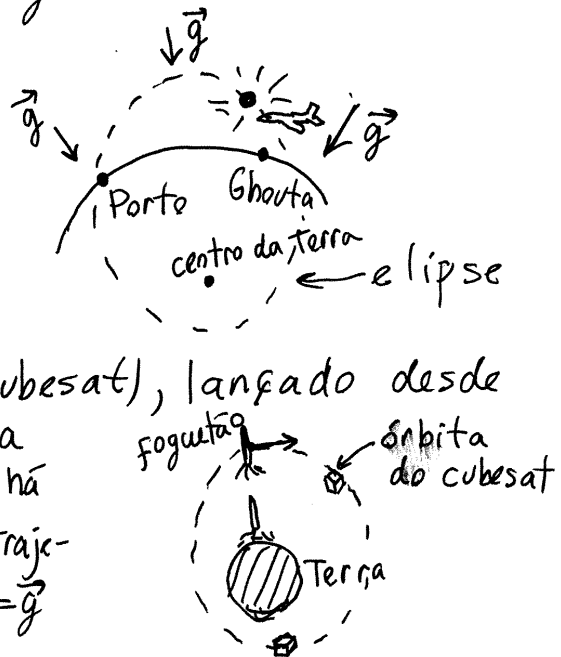 g
g
g
Porto
Ghouta
centro da Terra
elipse
ubesat), lançado desde
a
foguetão
órbita
do cubesat
há
raje-
Terra
=g